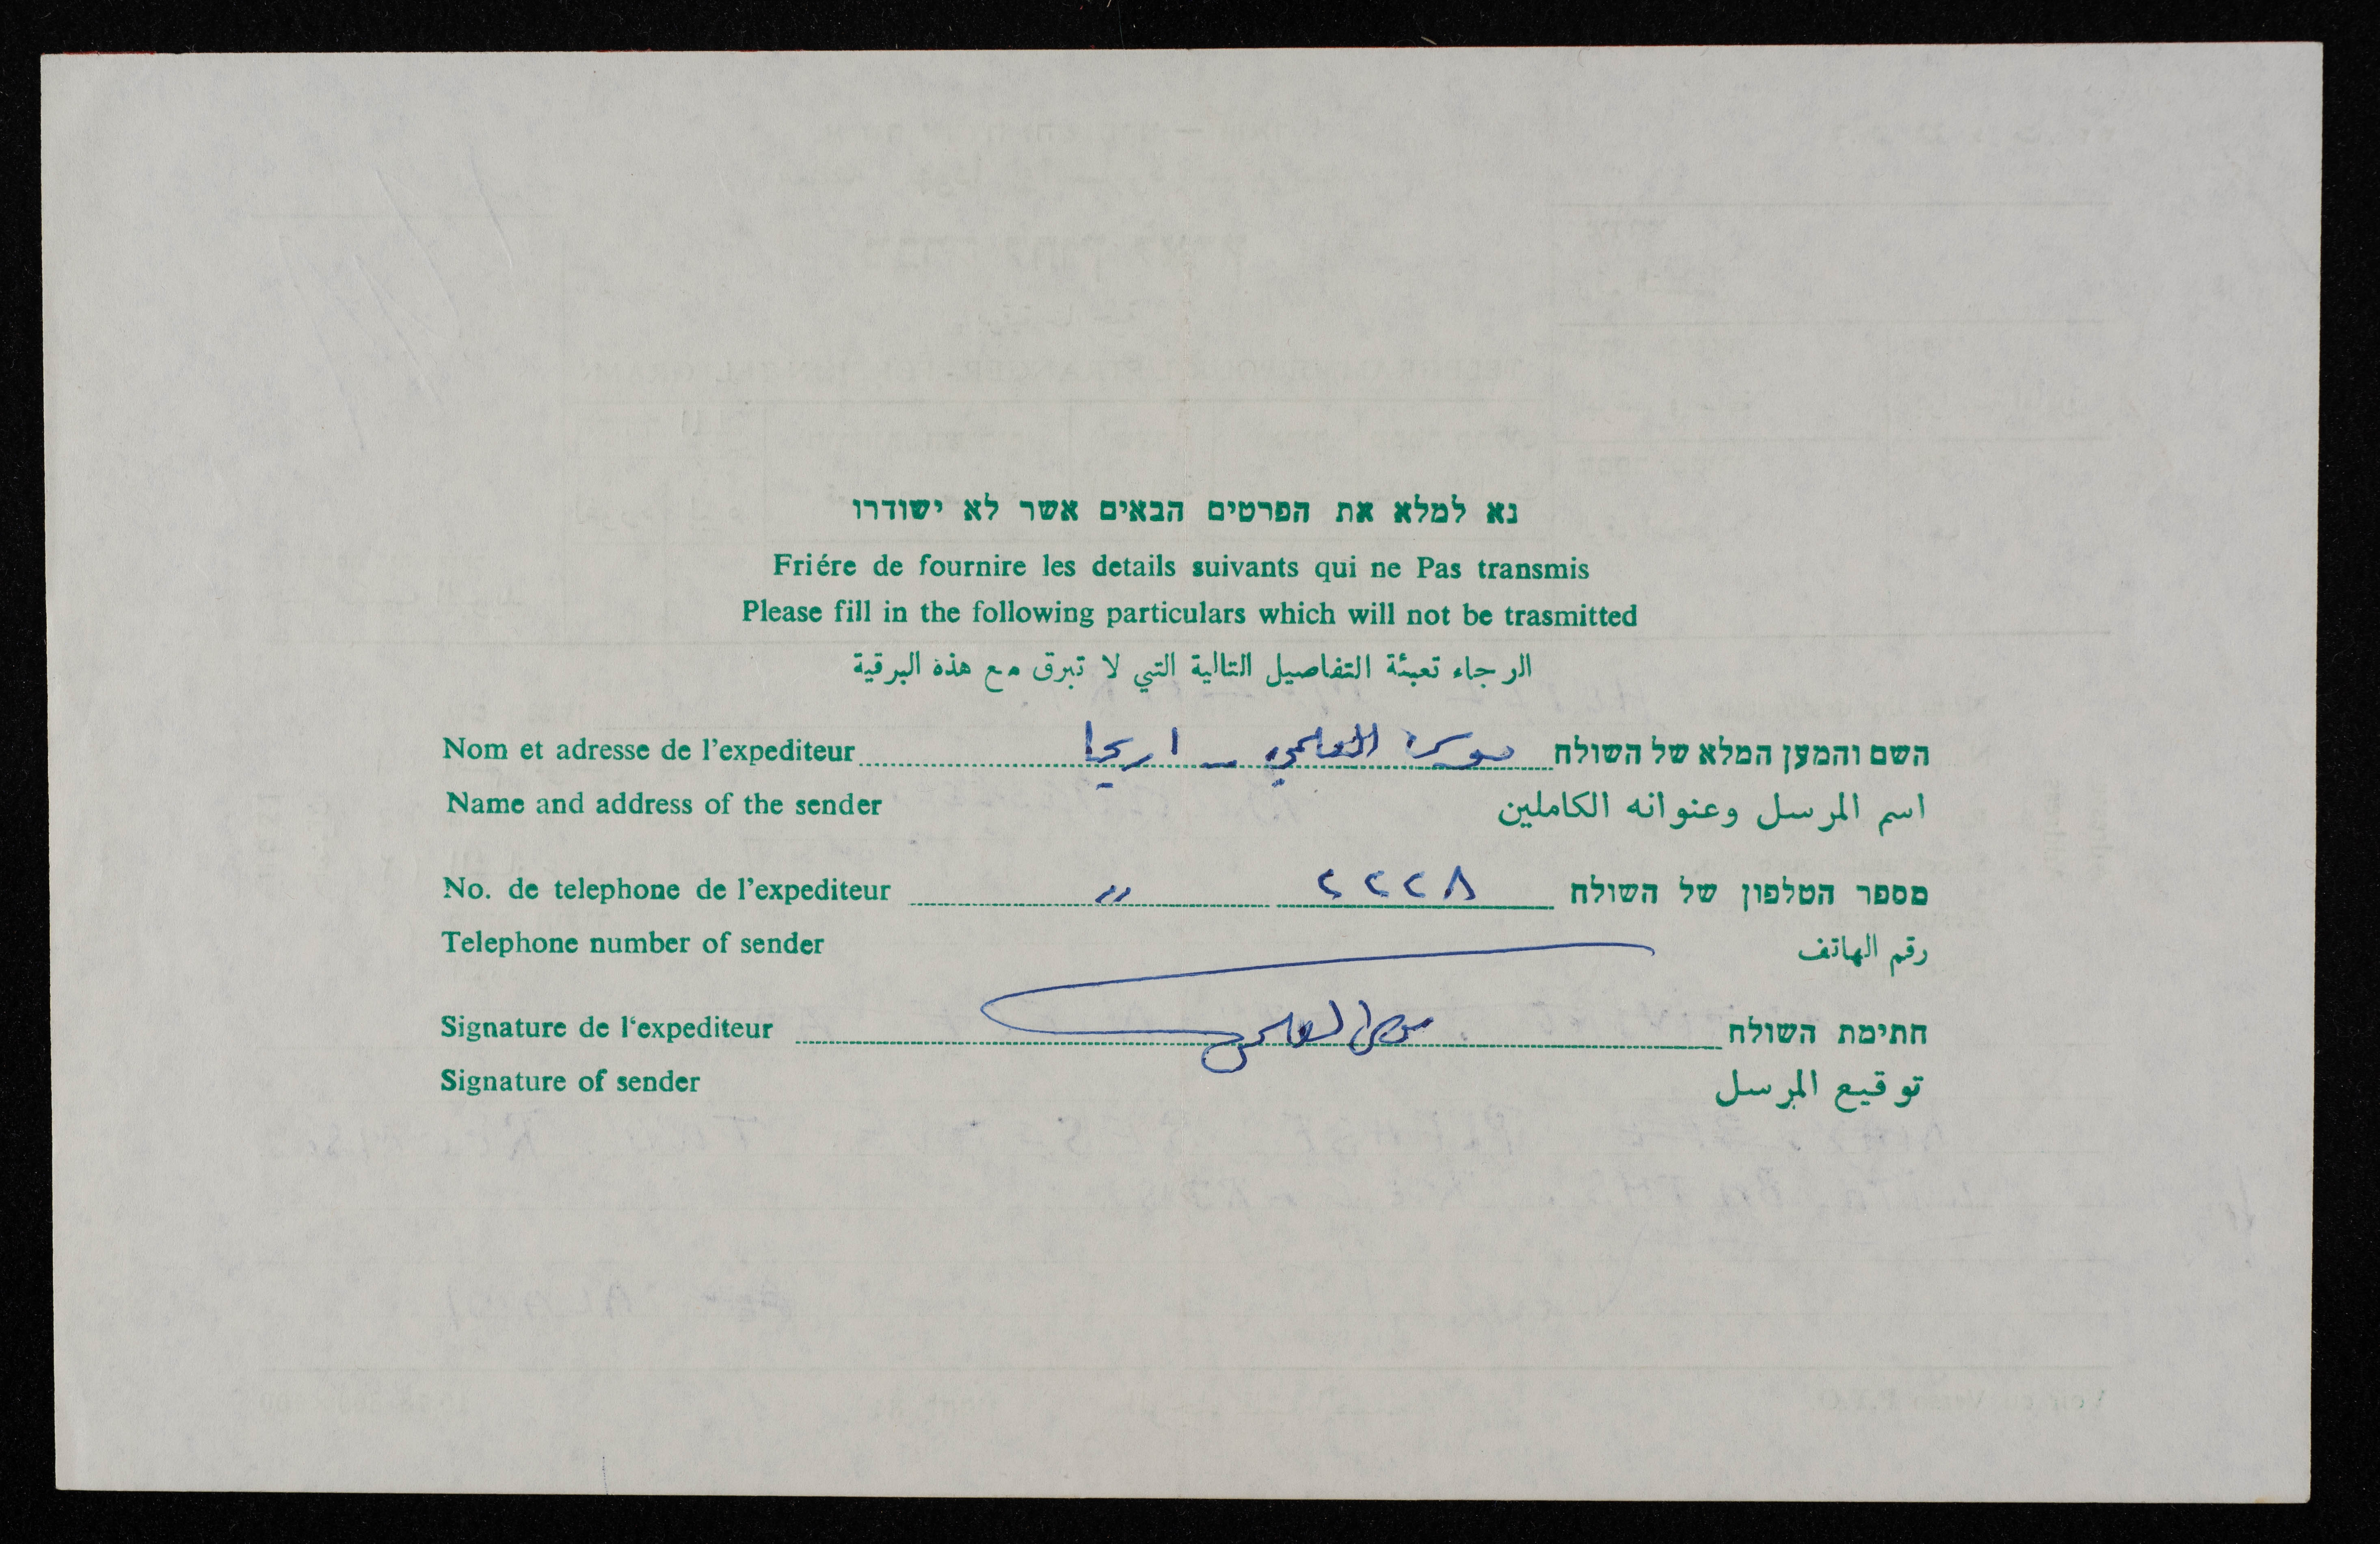 נא למלא את הפרטים הבאים אשר לא ישודרו
Friére de fournire les details suivants qui ne Pas transmis
Please fill in the following particulars which will not be trasmitted
الرجاء تعبئة التفاصيل التالية التي لا تبرق مع هذه البرقية
Nom et adresse de l'expediteur موسى العلمي - اريحا השם והמען המלא של השולח
Name and address of the sender اسم المرسل وعنوانه الكاملين
No. de telephone de l'expediteur " ٢٢٢٨ מספר הטלפון של השולח
Telephone number of sender رقم الهاتف
Signature de l'expediteur موسى العلمي חתימת השולח
Signature of sender توقيع المرسل